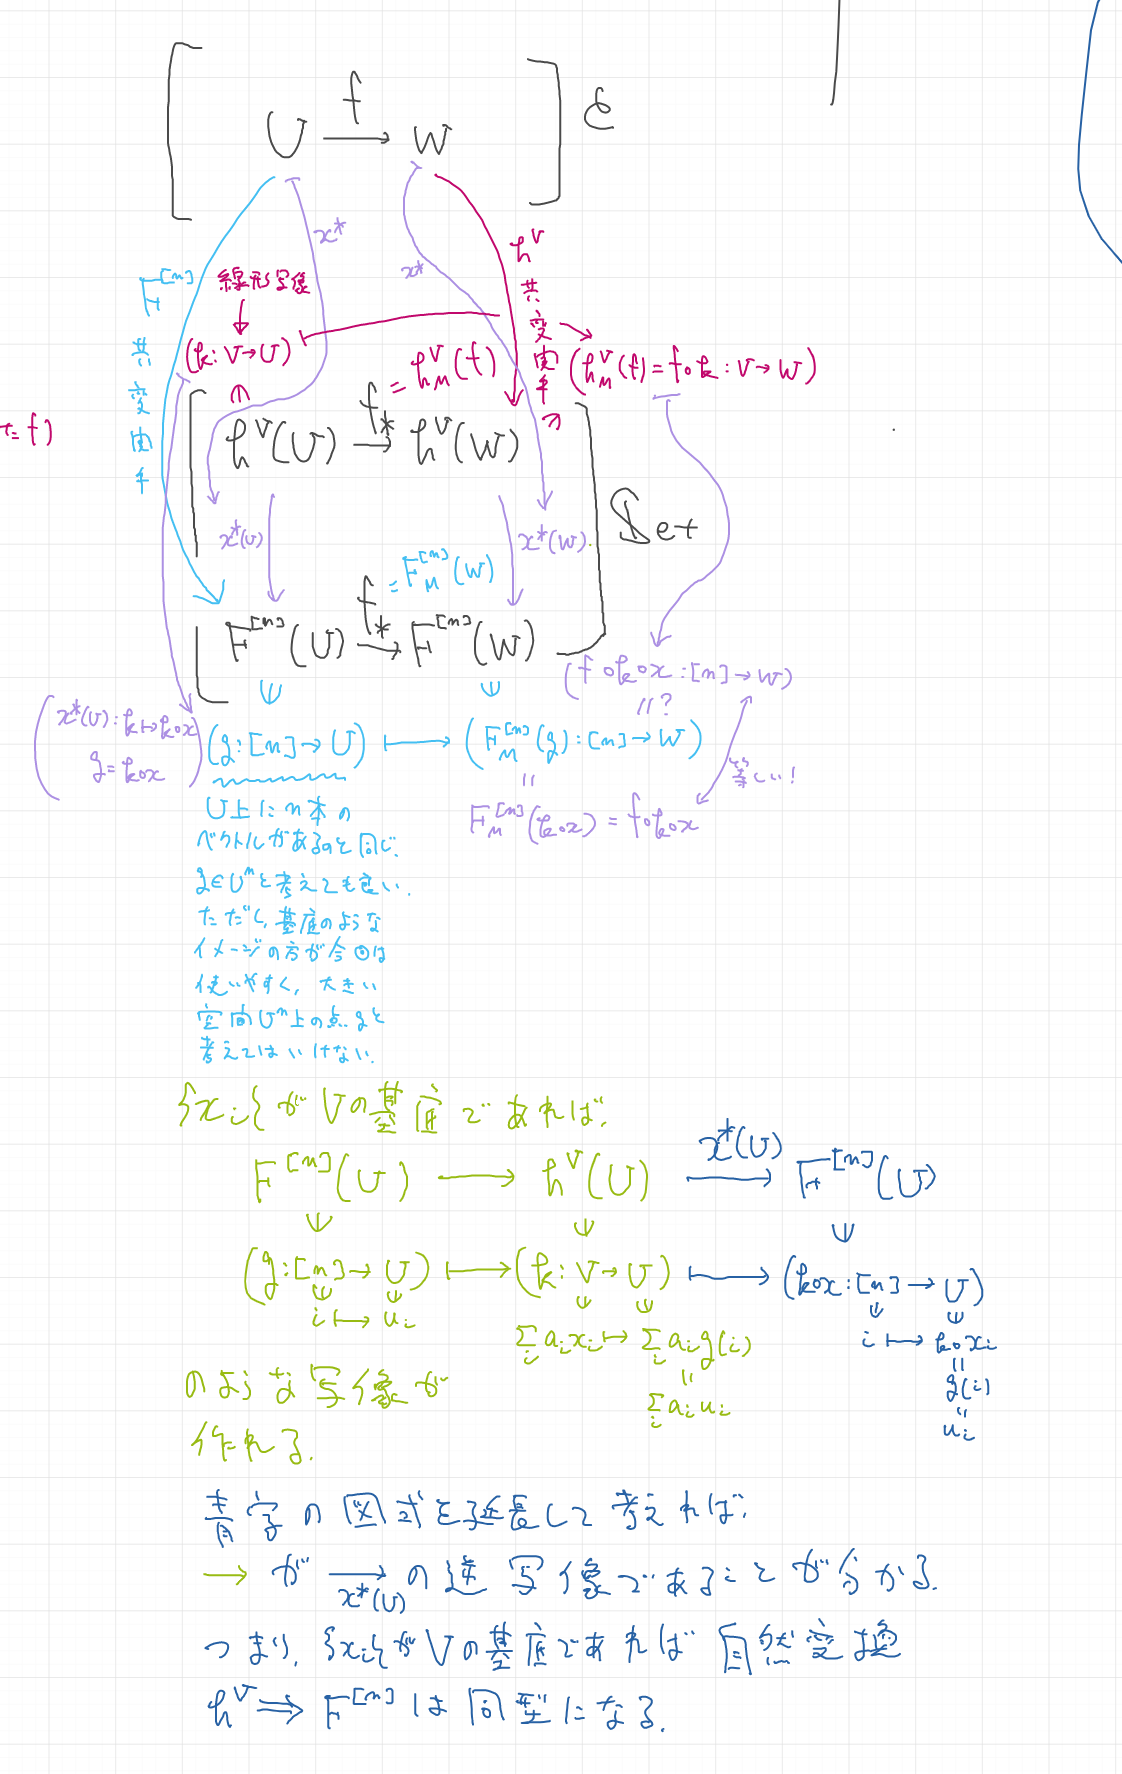 U f→ W ℰ
x*
x*
h^V 共変関手
F^[n] 共変関手
線形写像
(k: V→U)
= h_M^V(f)
(h_M^V(f) = f∘k : V→W)
た f)
h^V(U) f_*→ h^V(W)
Set
x*(U)
x*(W)
= F_M^[n](W)
F^[n](U) f_*→ F^[n](W)
(f∘k∘x : [n]→W)
〃?
(x*(U) : k↦k∘x
g = k∘x)
(g : [n]→U) ⟼ (F_M^[n](g) : [n]→W)
等しい!
F_M^[n](k∘x) = f∘k∘x
U上にn本の
ベクトルがあるのと同じ.
g∈U^nと考えても良い.
ただし,基底のような
イメージの方が今回は
使いやすく,大きい
空間U^n上の点gと
考えてはいけない.
{x_i}がVの基底であれば,
F^[n](U) → h^V(U) x*(U)→ F^[n](U)
(g : [n]→U) ⟼ (k : V→U) ⟼ (k∘x : [n]→U)
i ⟼ u_i
Σ_i a_i x_i ↦ Σ_i a_i g(i)
= Σ_i a_i u_i
i ⟼ k∘x_i
= g(i)
= u_i
のような写像が
作れる.
青字の図式を延長して考えれば,
→ が →x*(U) の逆写像であることが分かる.
つまり,{x_i}がVの基底であれば自然変換
h^V ⇒ F^[n] は同型になる.